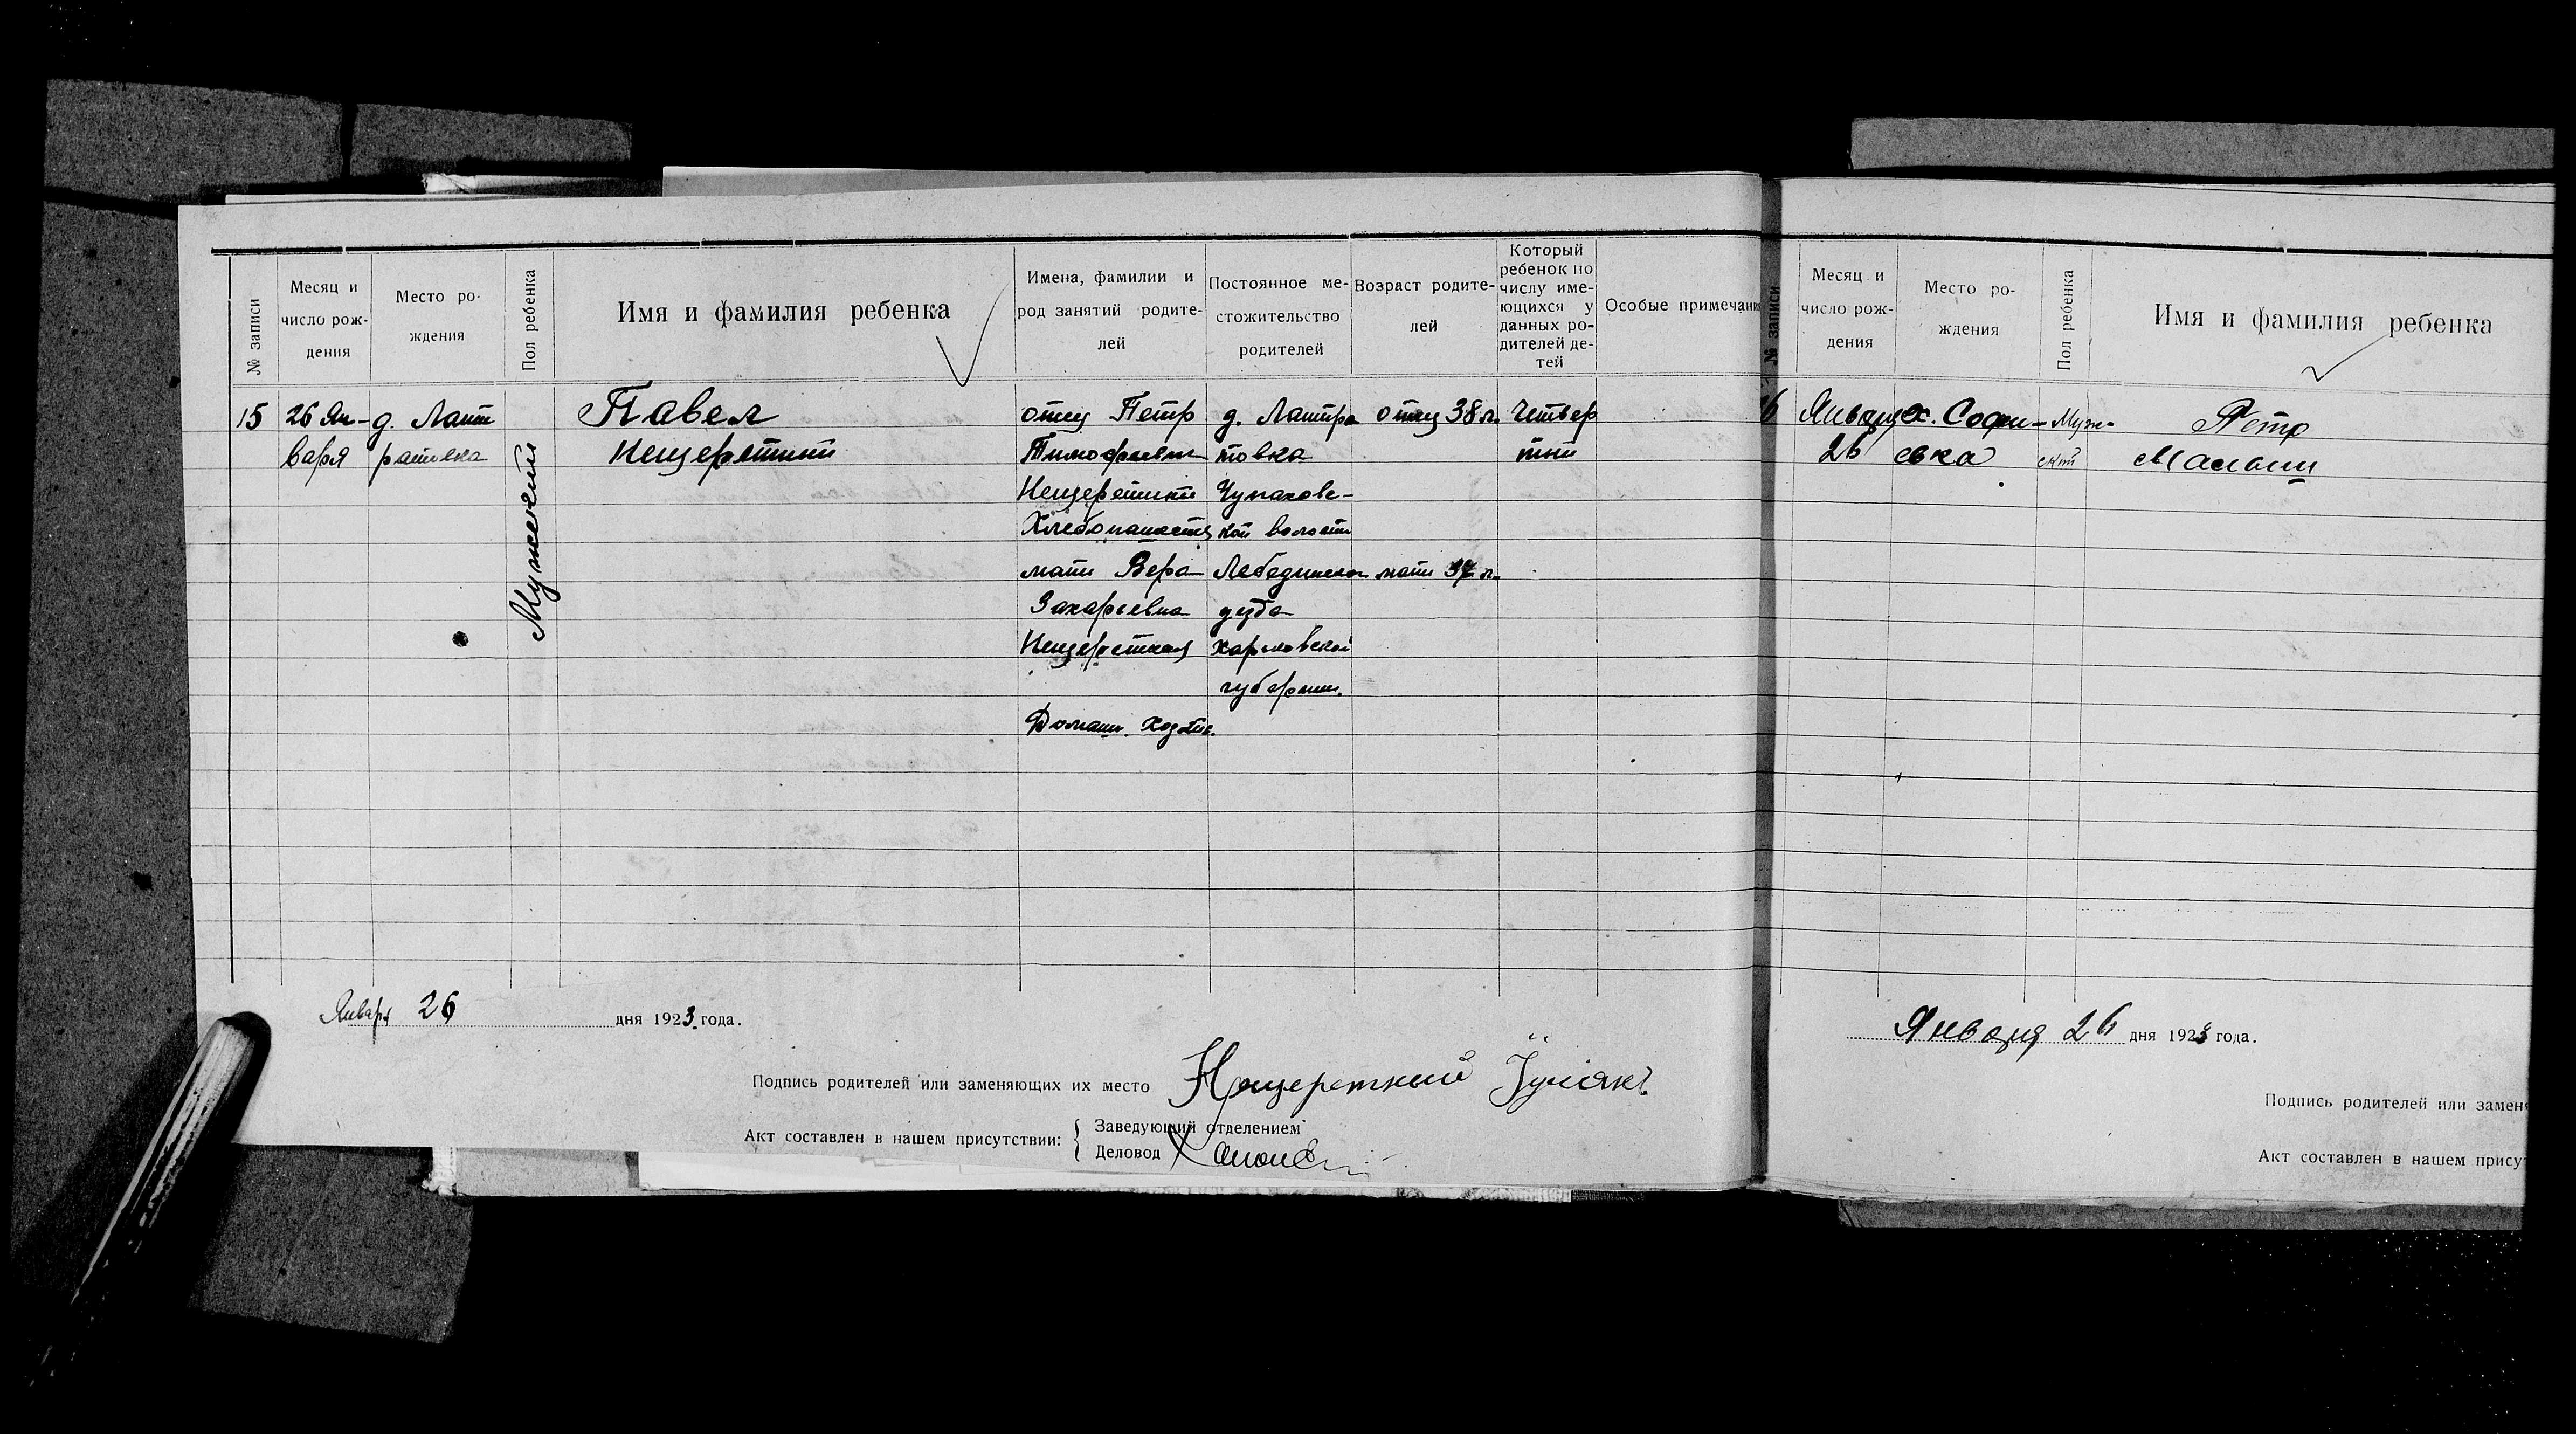 № записи
Месяц и
число рож-
дения
Место ро-
ждения
Пол ребенка
Имя и фамилия ребенка
Имена, фамилии и
род занятий родите-
лей
Постоянное ме-
стожительство
родителей
Возраст родите-
лей
Который
ребенок по
числу име-
ющихся у
данных ро-
дителей де-
тей
Особые примечани
15
26 Ян-
варя
д. Лапт
ратовка
Мужский
Павел
Нещеретний
отец Петр
Тимофеевич
Нещеретний
Хлебопашест
мати Вера
Захарьевна
Нещеретная
Домашн. Хозяйс.
д. Лаптра
товка
Чупаховс-
кой волости
Лебединско
уезда
Харьковской
губернии.
отец 38 л.
мати 37 л.
Четвер
тий
Января 26 дня 1923 года.
Подпись родителей или заменяющих их место Нещеретний
Акт составлен в нашем присутствии:
Заведующий отделением
Деловод
№ записи
Месяц и
число рож-
дения
Место ро-
ждения
Пол ребенка
Имя и фамилия ребенка
6
Января
26
х. Софи-
евка
Муж-
ский
Петр
Января 26 дня 1923 года.
Подпись родителей или замен
Акт составлен в нашем присут